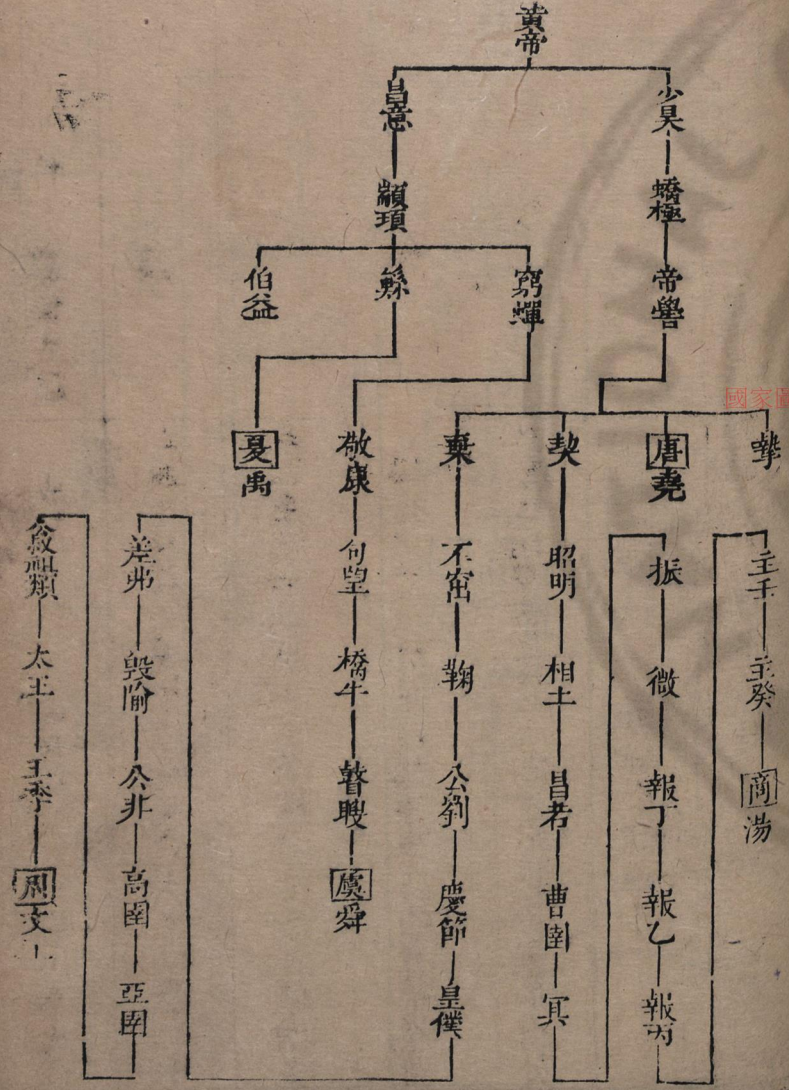 黃帝
少昊
蟜極
帝嚳
摯
唐堯
契
昭明
相土
昌若
曹圉
冥
振
微
報丁
報乙
報丙
主壬
主癸
商湯
棄
不窋
鞠
公劉
慶節
皇僕
差弗
毀隃
公非
高圉
亞圉
公叔祖類
太王
王季
周文王
昌意
顓頊
窮蟬
敬康
句望
橋牛
瞽瞍
虞舜
鯀
夏禹
伯益
國家圖